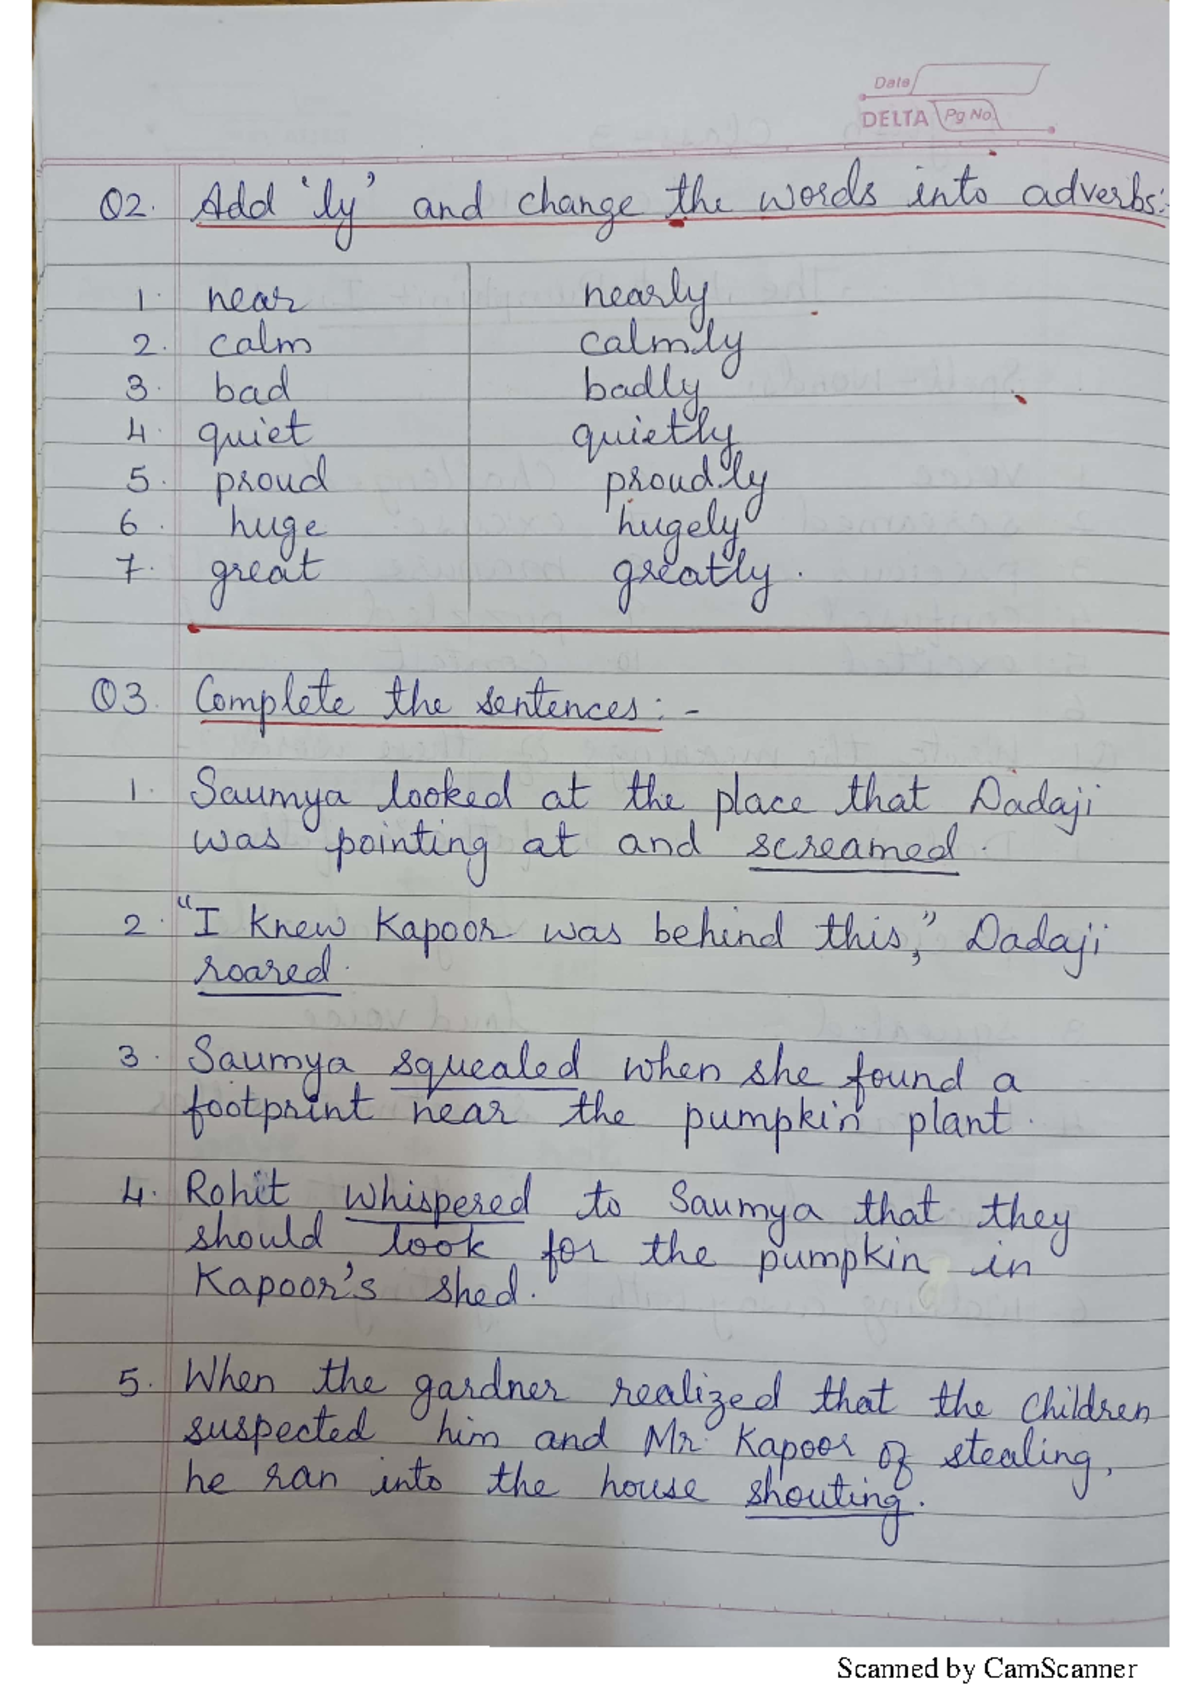 Date
DELTA Pg No.
Q2. Add 'ly' and change the words into adverbs:-
1. near nearly
2. calm calmly
3. bad badly
4. quiet quietly
5. proud proudly
6. huge hugely
7. great greatly.
Q3. Complete the sentences:-
1. Saumya looked at the place that Dadaji
was pointing at and screamed.
2. "I knew Kapoor was behind this," Dadaji
roared.
3. Saumya squealed when she found a
footprint near the pumpkin plant.
4. Rohit whispered to Saumya that they
should look for the pumpkin in
Kapoor's shed.
5. When the gardner realized that the children
suspected him and Mr. Kapoor of stealing,
he ran into the house shouting.
Scanned by CamScanner